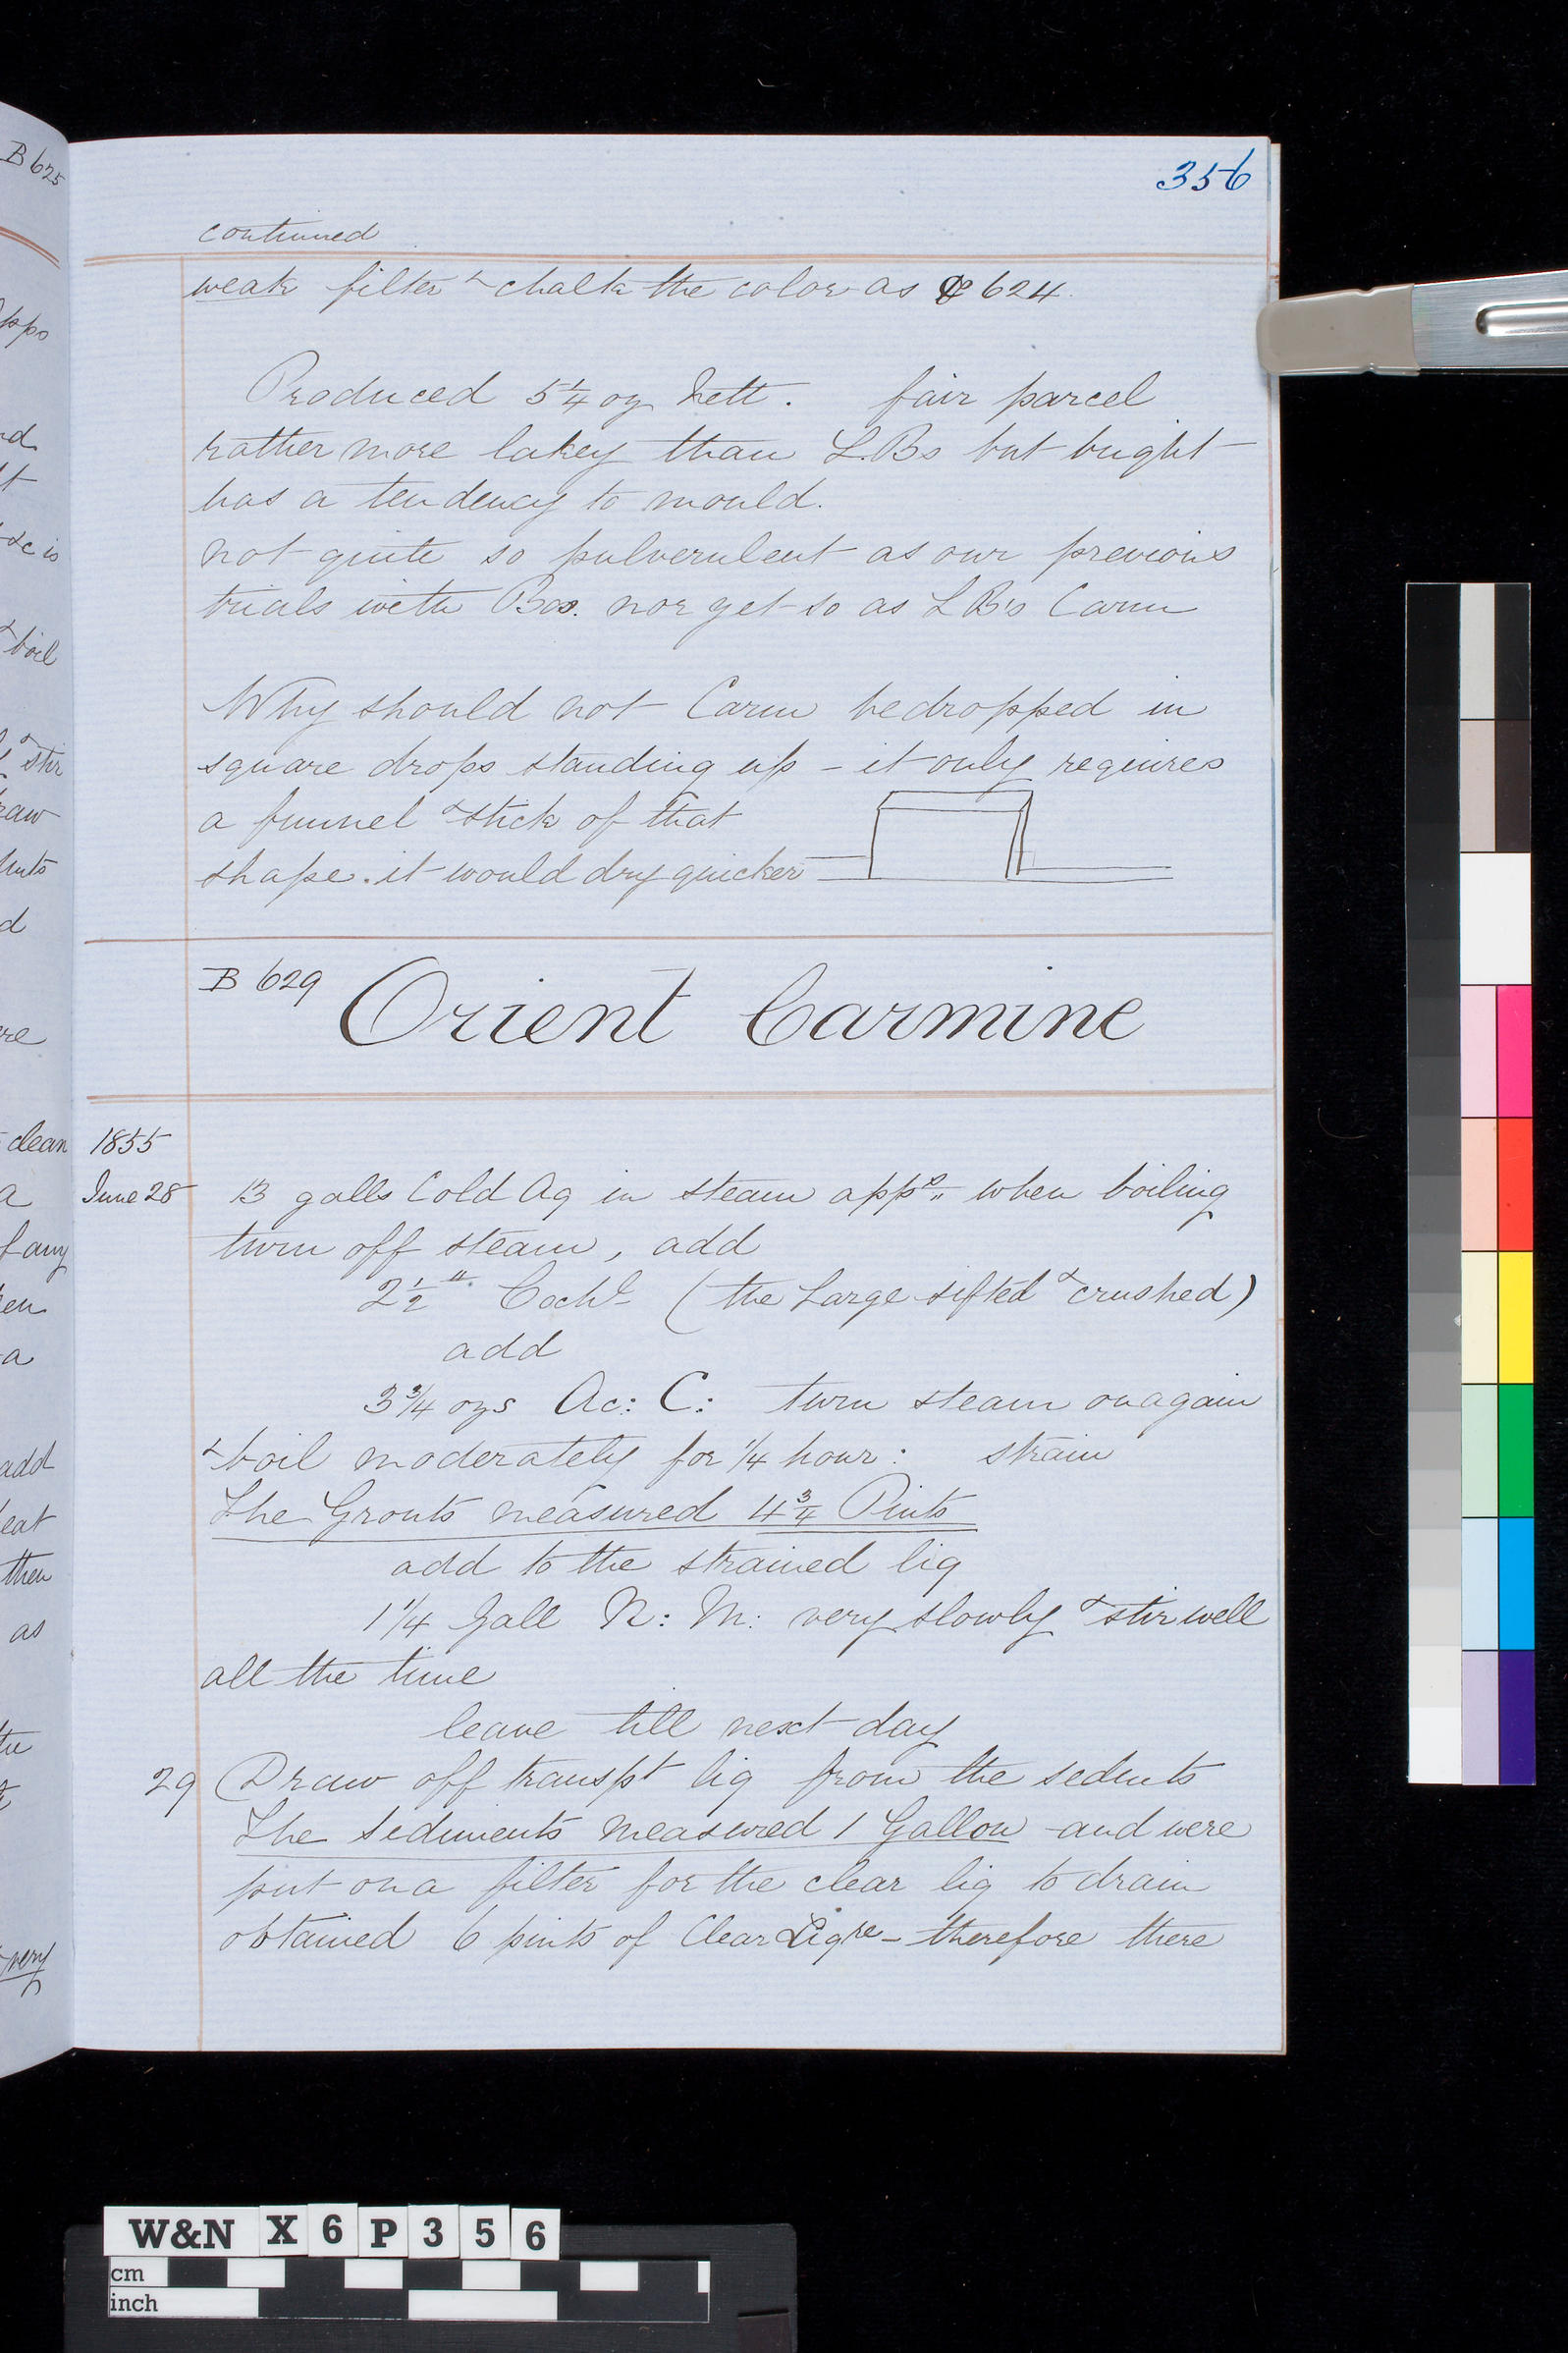 356
continued
weak filter & chalk the color as 624.
Produced 5 1/4 oz Nett. fair parcel
rather more lakey than L.Bs but bright
has a tendency to mould.
not quite so pulverulent as our previous
trials with nor yet so as L B's Carm
Why should not Carm be dropped in
square drops standing up - it only requires
a funnel & stick of that
shape. it would dry quicker
B 629
Orient Carmine
1855
June 28 13 galls Cold Aq in steam apps. when boiling
turn off steam, add
2 1/2 lb Cochl (the Large sifted & crushed)
add
3 3/4 ozs Ac: C: turn steam on again
& boil moderately for 1/4 hour: strain
The Grouts measured 4 3/4 Pints
add to the strained liq
1 1/4 Gall N: M: very slowly & stir well
all the time
leave till next day
29 Draw off transpt liq from the sedents
The Sediments measured 1 Gallon and were
put on a filter for the clear liq to drain
obtained 6 pints of Clear Liqre - therefore there
B 625
oppo
nd
&c is
& boil
& stir
raw
d
re
clean
a
f any
en
a
add
eat
then
as
very
W&N X 6 P 3 5 6
cm
inch